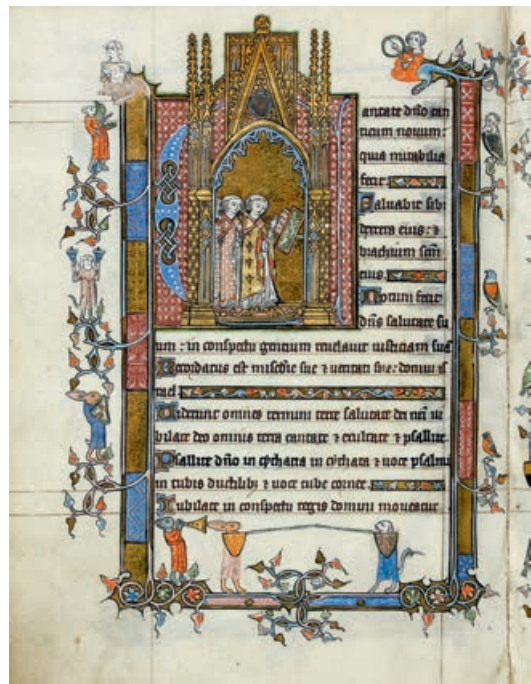 Cantate dño can
ticum novum:
quia mirabilia
fecit
Salvabit sibi
dextera eius: ⁊
brachium scm̄
eius.
Notum fecit
dñs salutare su
um: in conspectu gentium revelavit iusticiam suā
Recordatus est misc̄die sue ⁊ veritati sue: domui is
rael
Viderunt omnes termini terre salutare dei nr̄i iu
bilate deo omnis terra cantate ⁊ exultate ⁊ psallite.
Psallite dño in cythara in cythara ⁊ voce psalmi
in tubis ductilibꝫ ⁊ voce tube cornee.
Iubilate in conspectu regis domini moveatur